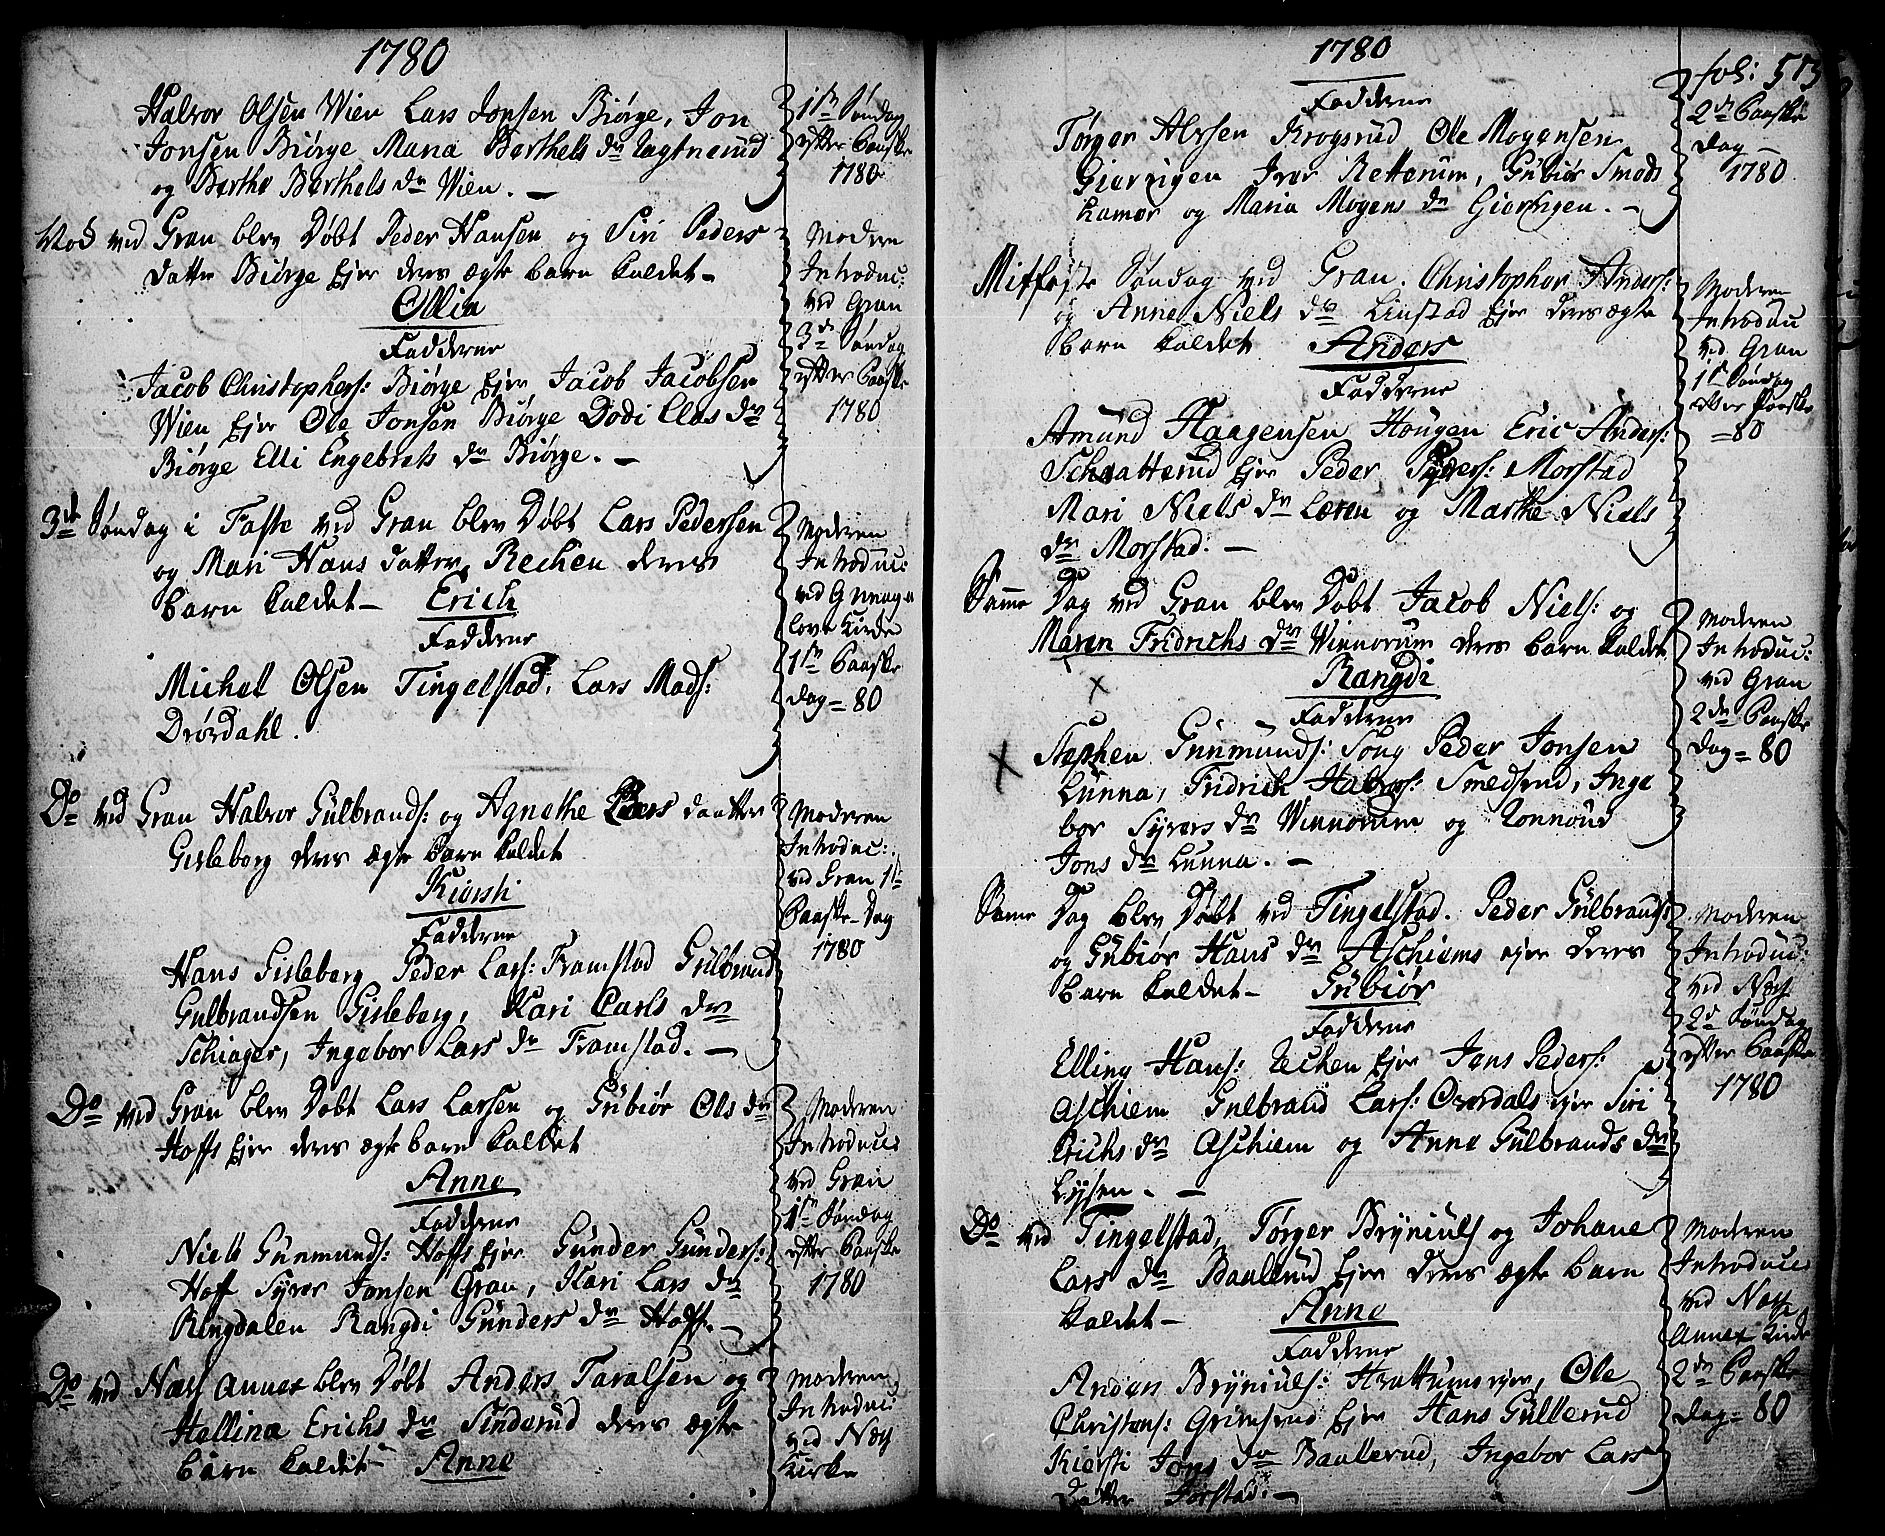 1780
Halvor Olsen Wien Lars Jonsen Biørge, Jon
Jonsen Biørge Maria Berthels dr
og Berthe Berthels dr Wien. —
1st Søndag
efter Paaske
1780
ved Gran blev Døbt Peder Hansen og Siri Peders
datter Biørge Ejer deres ægte barn kaldet —
Ollia
Fadderne
Jacob Christophers: Biørge Ejer Jacob Jacobsen
Wien Ejer Ole Jonsen Biørge Dodi Clas dr
Biørge Elli Engebrets dr Biørge. —
Modren
Introduc:
ved Gran
3de Søndag
efter Paaske
1780
3de Søndag i Faste ved Gran blev Døbt Lars Pedersen
og Mari Hans datter Rechen deres
barn kaldet — Erich
Fadderne
Michel Olsen Tingelstad, Lars Mads:
Drørdahl.
Moderen
Introduc:
ved
Kirke
1st Paaske
dag = 80
Do ved Gran Halvor Gulbrands: og Agnethe Peers daatter
Gisleberg deres ægte barn kaldet
Kiersti
Fadderne
Hans Gisleberg Peder Lars: Framstad Gulbrand
Gulbrandsen Gisleberg, Kari Carls dr
Schiager, Ingebor Lars dr Framstad. —
Moderen
Introduc:
ved Gran 1st
Paaske-Dag
1780
Do ved Gran blev Døbt Lars Larsen og Gubiør Ols dr
Hoffs Ejer deres ægte barn kaldet
Anne
Fadderne
Niels Gunmunds: Hoffs Ejer Gunder Gunders:
Hoff Syver Jonsen Gran, Kari Lars dr
Ringdalen Rangdi Gunders dr Hoff. —
Moderen
Introduc
ved Gran
1st Søndag
efter Paaske
1780
Do ved Næss annex blev Døbt Anders Taralsen og
Hellina Erichs dr Sinderud deres ægte
barn kaldet Anne
Moderen
Introduc:
ved Næss
Kirke
1780
fol: 515
Fadderne
Tørger Alvsen Krogsrud Ole Mogensen
Giervigen Iver Retterum, Gubiør Smeds
kamer og Maria Mogens dr Giervigen. —
2de Paaske
dag —
1780
Mitfaste Søndag ved Gran. Christopher Anders:
og Anne Niels dr Linstad Ejer deres ægte
barn kaldet Anders
Fadderne
Amund Haagensen Hougen Eric Anders:
Schaatterud Ejer Peder Peders: Morstad
Mari Niels dr Læren og Marthe Niels
dr Morstad. —
Moderen
Introduc
ved Gran
1st Søndag
efter Paaske
= 80
Samme Dag ved Gran blev Døbt Jacob Niels: og
Maren Fridrichs dr Winnorum deres barn kaldet
Rangdi
Fadderne
Stephen Gunmunds: Soug Peder Jonsen
Lunna, Fridrich Halvors: Smedsrud, Inge
bor Syvers dr Winnorum og Ronnoug
Jons dr Lunna. —
Moderen
Introduc:
ved Gran
2den Paaske
Dag = 80
Same Dag blev Døbt ved Tingelstad. Peder Gulbrands:
og Gubiør Hans dr Aschiems ejer deres
barn kaldet — Gubiør
Fadderne
Elling Hans: Ejer Jens Peders:
Aschiem Gulbrand Lars: Overdals ejer Siri
Erichs dr Aschiem og Anne Gulbrands dr
Lysen. —
Moderen
Introduc:
ved Næss
2de Søndag
efter Paaske
1780
Do ved Tingelstad, Tørger Bryniuls og Johane
Lars dr Baulerud Ejer deres ægte barn
kaldet — Anne
Fadderne
Anders Bryniuls: Hvattums ejer, Ole
Christens: Grimsrud Ejer Hans Gullerud
Kiersti Jons dr Baulerud, Ingebor Lars
datter Jorstad. —
Moderen
Introduc
ved Næss
Annex Kirke
2de Paaske
Dag = 80